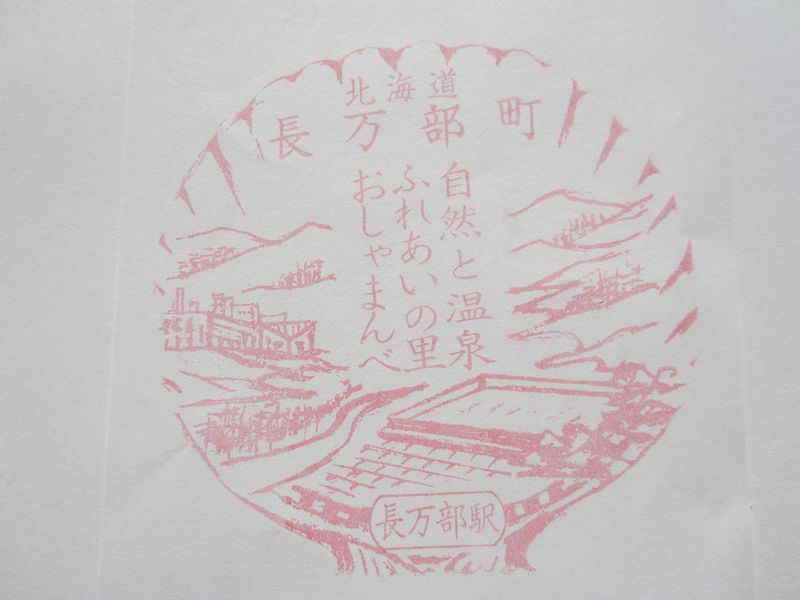 北海道
長万部町
自然と温泉
ふれあいの里
おしゃまんべ
長万部駅